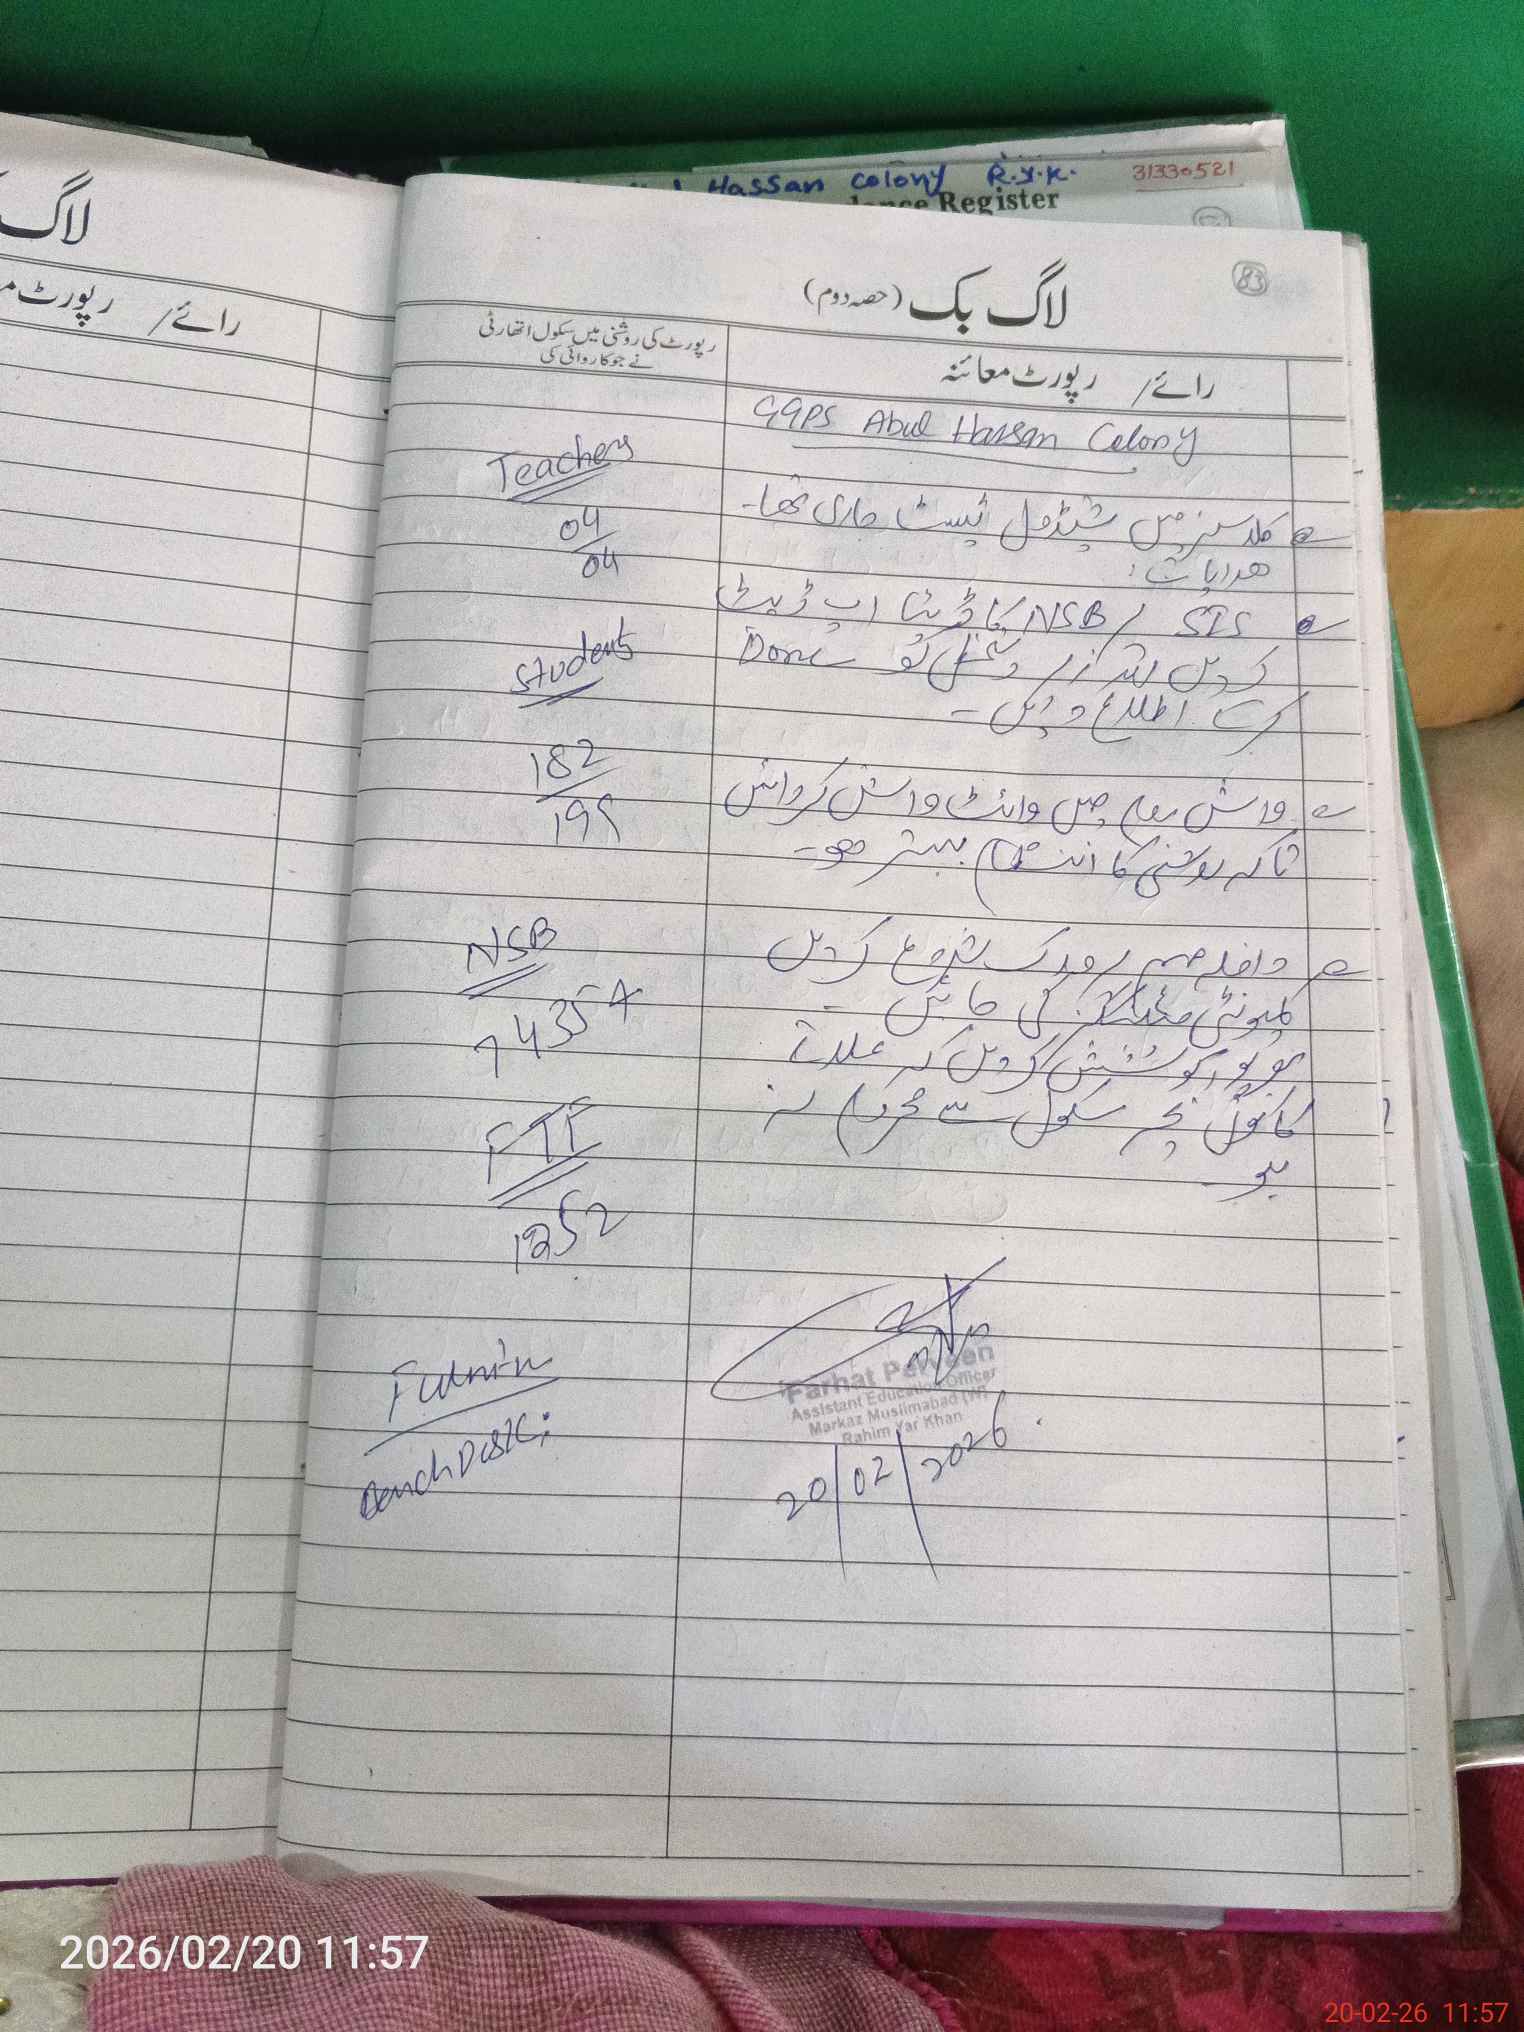 Hassan colony R.Y.K.
31330521
Register
لاگ
رائے/ رپورٹ
83
لاگ بک (حصہ دوم)
رپورٹ کی روشنی میں سکول اتھارٹی
نے جو کاروائی کی
رائے/ رپورٹ معائنہ
GGPS Abul Hassan Colony
کلاسز میں شیڈول ٹیسٹ جاری تھا۔
ھدایات:
SIS / NSB کا ڈیٹا اپ ڈیٹ
کردیں
Done
کرکے اطلاع دیں۔
واش روم میں وائٹ واش کروائیں
تاکہ روشنی کا انتظام بہتر ھو۔
داخلہ مہم شروع کردیں
کمیونٹی میٹنگز کی جائیں۔
بھرپور کوشش کردیں کہ علاقے
کا کوئی بچہ سکول سے محروم نہ
ہو۔
Teachers
04
04
Students
182
199
NSB
74354
FTF
1252
Bench Desk;
Farhat Parveen
Assistant Education Officer
Markaz Muslimabad (W)
Rahim Yar Khan
20/02/2026
2026/02/20 11:57
20-02-26 11:57